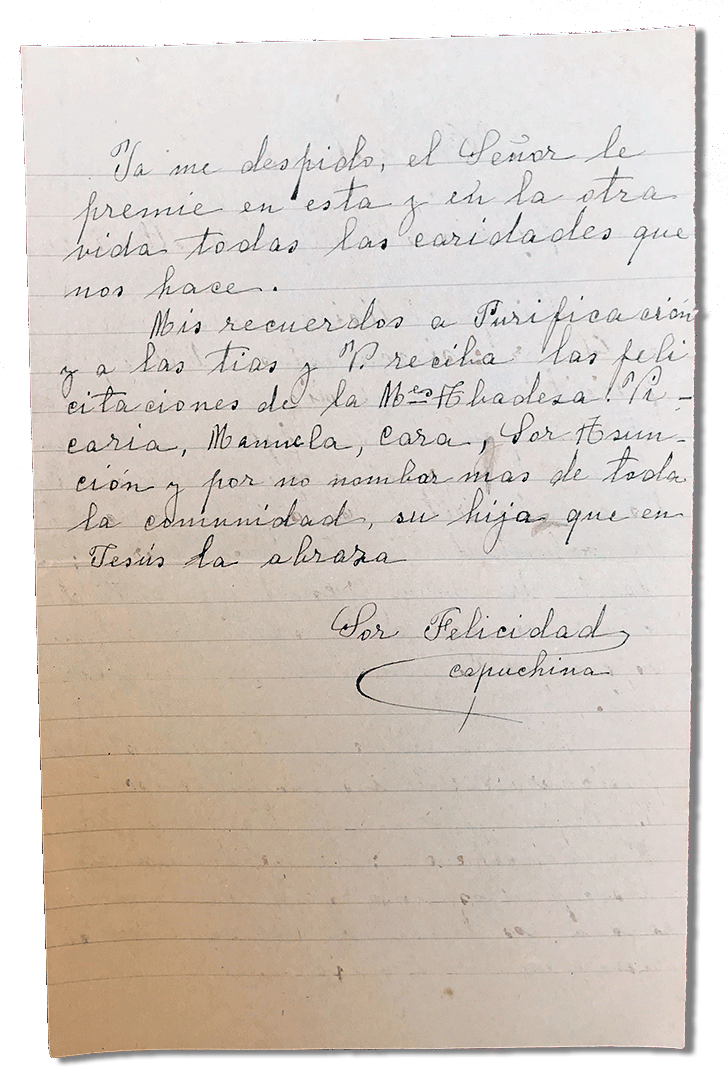 Ya me despido, el Señor le
premie en esta y en la otra
vida todas las caridades que
nos hace.
Mis recuerdos a Purificación
y a las tias y V. reciba las feli
citaciones de la Mes Abadesa. Vi-
caria, Manuela, Cara, Sor Asun-
ción y por no nombar mas de toda
la comunidad, su hija que en
Jesús la abraza
Sor Felicidad
capuchina